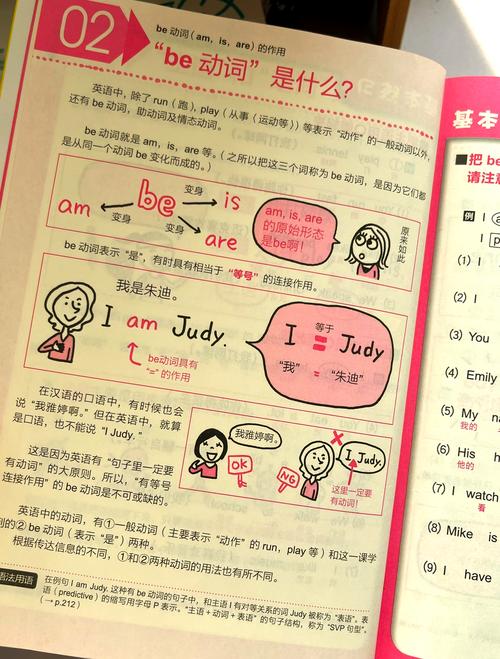 02
be 动词(am, is, are)的作用
“be 动词”是什么?
英语中，除了 run（跑），play（从事（运动等））等表示“动作”的一般动词以外，
还有 be 动词，助动词及情态动词。
be 动词就是 am, is, are 等。(之所以把这三个词称为 be 动词，是因为它们都
是从同一个动词 be 变化而成的。)
am
变身
be
变身
is
变身
are
am, is, are
的原始形态
是be啊！
原来如此
be 动词表示“是”，有时具有相当于“等号”的连接作用。
我是朱迪。
I am Judy.
be动词具有
“=”的作用
等于
I = Judy
“我” = “朱迪”
在汉语的口语中，有时候也会
说“我雅婷啊。”但在英语中，就算
是口语，也不能说“I Judy.”
这是因为英语有“句子里一定要
有动词”的大原则。所以，“有等号
连接作用”的 be 动词是不可或缺的。
我雅婷啊。
OK
NG
I Judy.
这里一定要
有动词！
英语中的动词，有①一般动词（主要表示“动作”的 run, play 等）和这一课学
到的② be 动词（表示“是”）两种。
根据传达信息的不同，①和②两种动词的用法也有所不同。
语法用语
在例句 I am Judy. 这种有 be 动词的句子中，和主语 I 有对等关系的词 Judy 被称为“表语”。表
语(predicative) 的缩写用字母 P 表示。“主语+动词+表语”的句子结构，称为“SVP 句型”。
(→ p.212)
基本
■把 be
请注意
例 I
I
(1) I
(2) I
(3) You
(4) Emily
(5) My
我的
(6) His
他的
(7) I watch
看
(8) Mike is
(9) I have